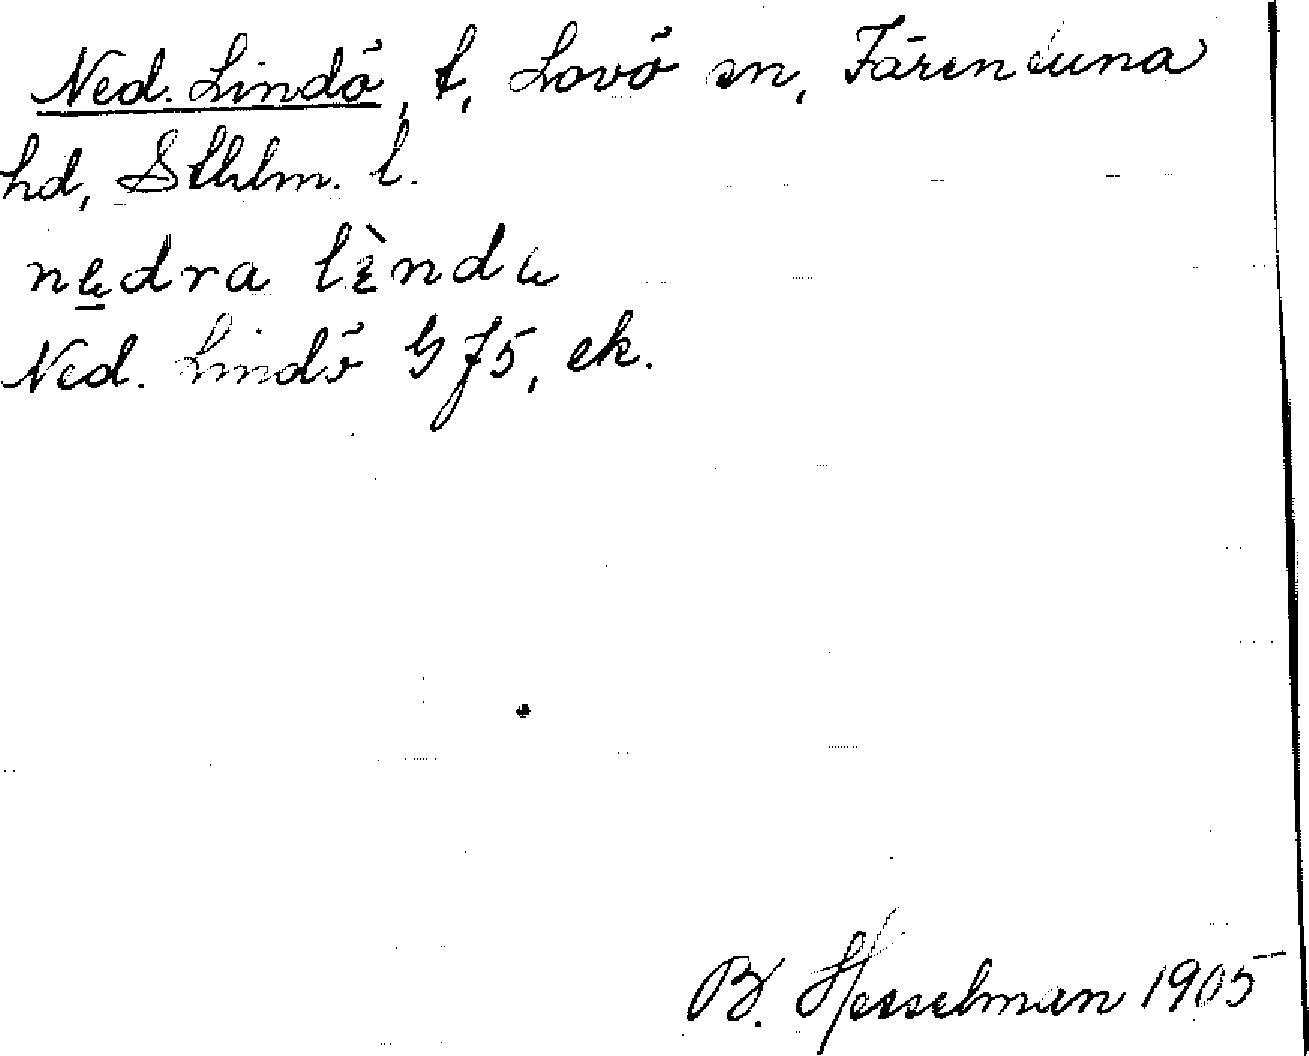 Ned. Lindö, t, Lovö sn, Färentuna
hd, Sthlm. l.
nedra lènd
Ned. Lindö GJ5, ek.
B. Hesselman 1905